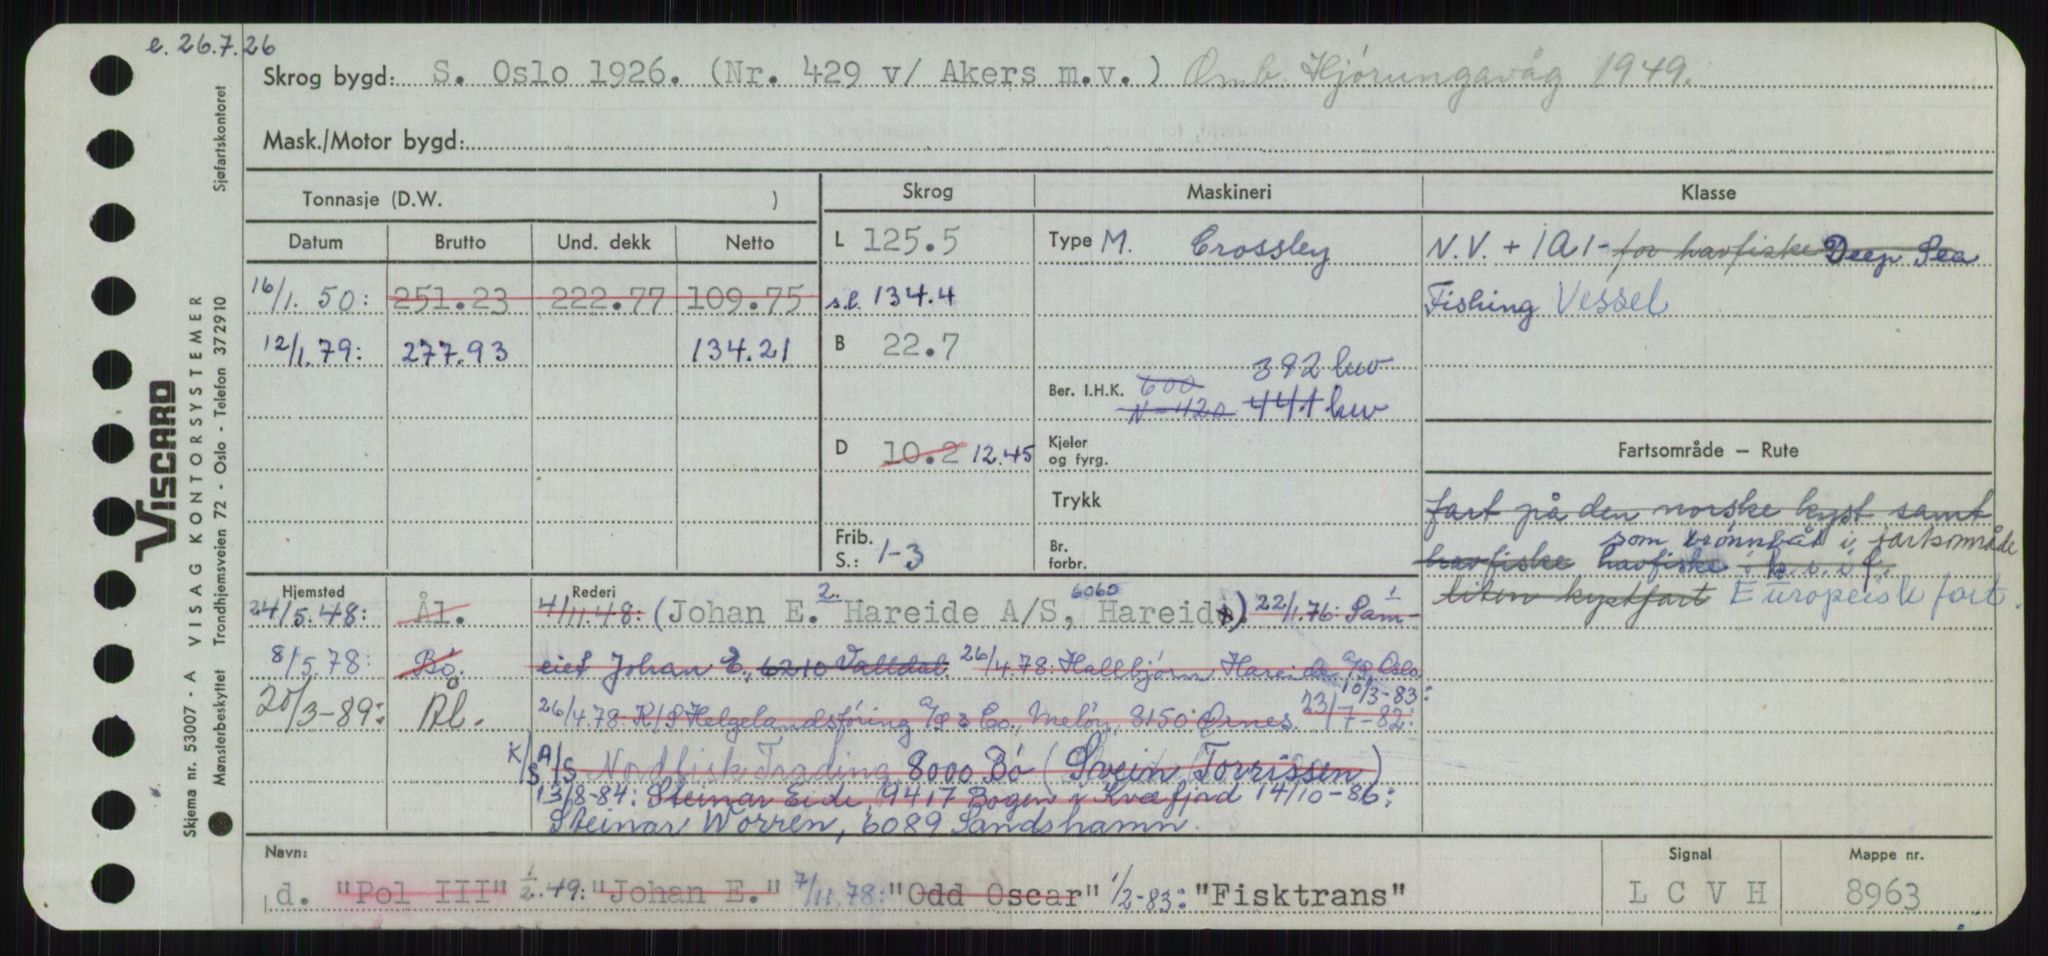 e. 26.7.26
Skrog bygd: S. Oslo 1926. (Nr. 429 v/ Akers m.v.) Omb. Hjörungavåg 1949.
Mask./Motor bygd:
Tonnasje (D.W. ) Skrog Maskineri Klasse
Datum Brutto Und. dekk Netto L 125.5 Type M. Crossley N.V. + 1A1 - for havfiske Deep Sea
16/1. 50: 251.23 222.77 109.75 s.l. 134.4 Fishing Vessel
12/1. 79: 277.93 134.21 B 22.7
392 luv
Ber. I.H.K. 600
N=420 441 luv
D 10.2 12.45 Kjeler og fyrg. Fartsområde – Rute
Trykk fart på den norske kyst samt
Frib. S.: 1-3 Br. forbr. som brønnbåt i fartsområde
havfiske havfiske i k.s.i.f.
liten kystfart Europeisk fart.
Hjemsted Rederi
24/5. 48: Ål. 4/11.48: (Johan E. 2. Hareide A/S, 6060 Hareid). 22/1.76: Sam-
8/5. 78: Bö. eiet Johan E., 6210 Valldal. 26/4.78: Hallbjørn Hareide A/S, Oslo.
10/3-83:
20/3-89: Ål. 26/4.78: K/S Helgelandsföring A/S & Co., Meløy, 8150 Ørnes. 23/7-82:
K/S A/S Nordfisk Trading 8000 Bö (Svein Torrissen)
13/8-84: Steinar Eide, 9417 Bogen i Kvæfjord 14/10-86:
Steinar Worren, 6089 Sandshamn.
Navn: Signal Mappe nr.
d. "Pol III" 1/2.49: "Johan E." 7/11.78: "Odd Oscar" 1/2-83: "Fisktrans" L C V H 8963
Skjema nr. 53007 - A VISAG KONTORSYSTEMER
VISCARD
Mønsterbeskyttet Trondhjemsveien 72 - Oslo - Telefon 372910 Sjøfartskontoret